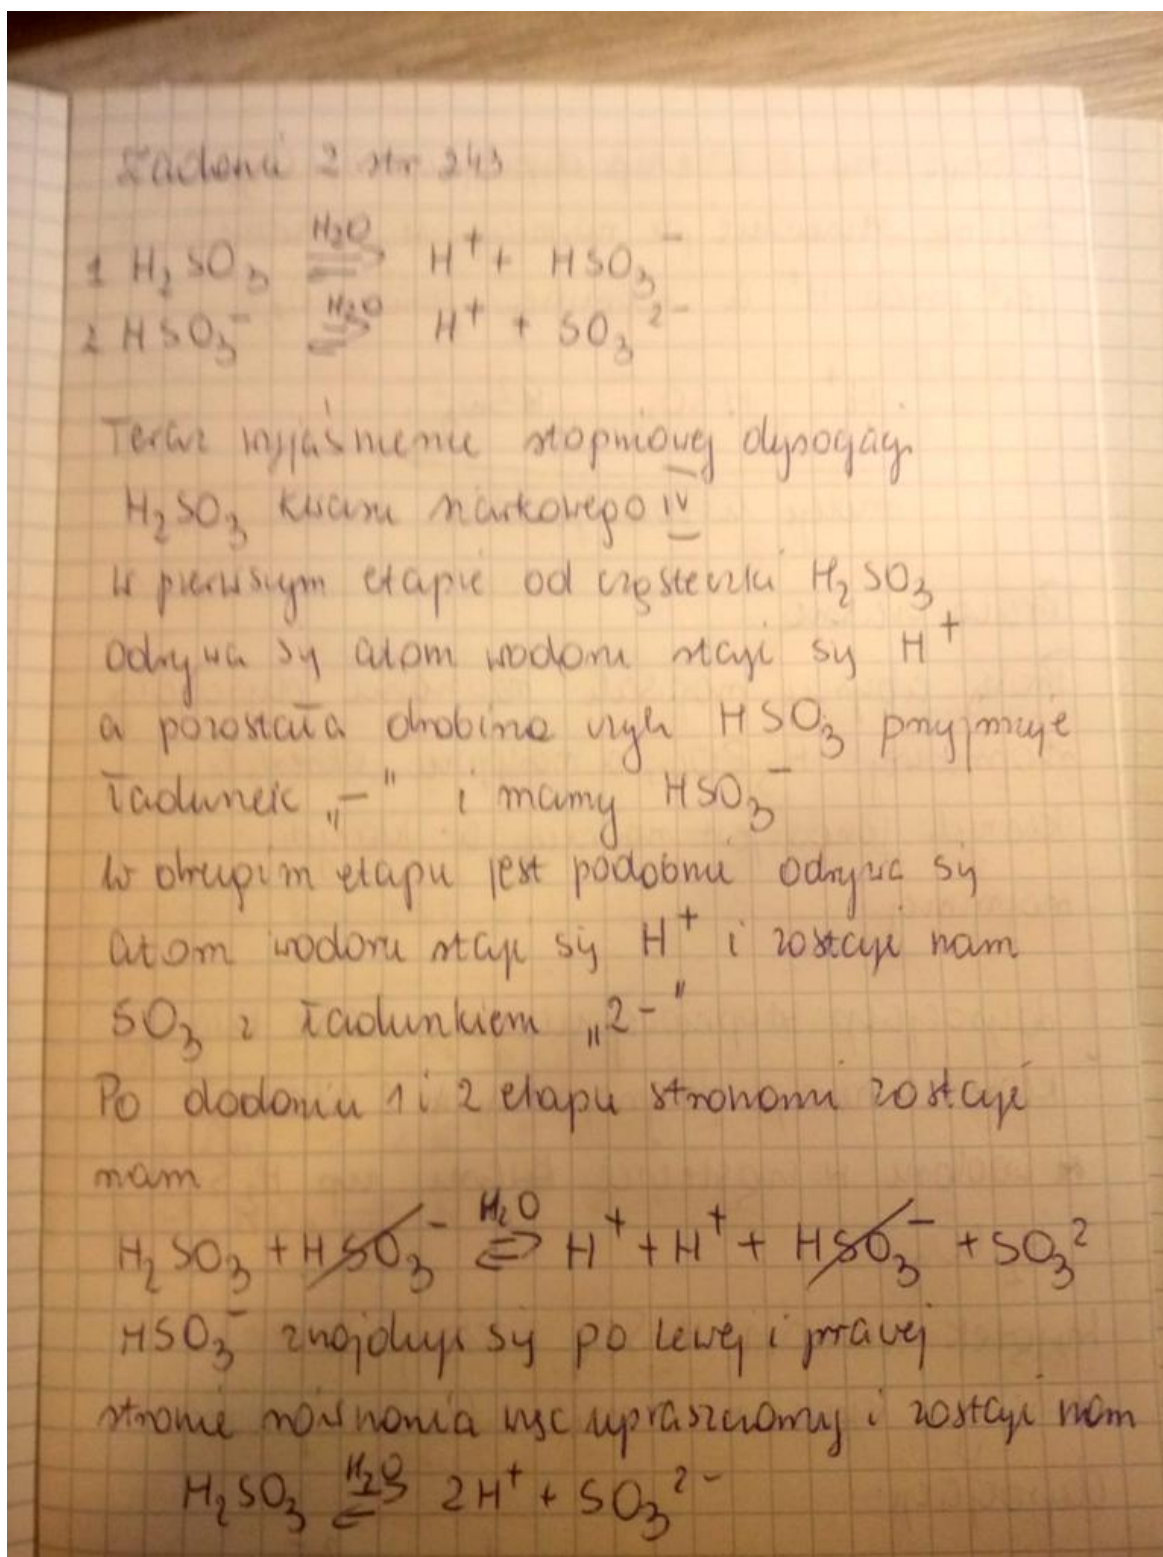 Zadanie 2 str 243
1 H₂SO₃ ⇌ H₂O H⁺ + HSO₃⁻
2 HSO₃⁻ ⇌ H₂O H⁺ + SO₃²⁻
Teraz wyjaśnienie stopniowej dysocjacji
H₂SO₃ kwasu siarkowego IV
W pierwszym etapie od cząsteczki H₂SO₃
odrywa się atom wodoru staje się H⁺
a pozostała drobina czyli HSO₃ przyjmuje
ładunek „-" i mamy HSO₃⁻
W drugim etapie jest podobnie odrywa się
atom wodoru staje się H⁺ i zostaje nam
SO₃ z ładunkiem „2-"
Po dodaniu 1 i 2 etapu stronami zostaje
nam
H₂SO₃ + HSO₃⁻ ⇌ H₂O H⁺ + H⁺ + HSO₃⁻ + SO₃²
HSO₃⁻ znajduje się po lewej i prawej
stronie równania więc upraszczamy i zostaje nam
H₂SO₃ ⇌ H₂O 2H⁺ + SO₃²⁻